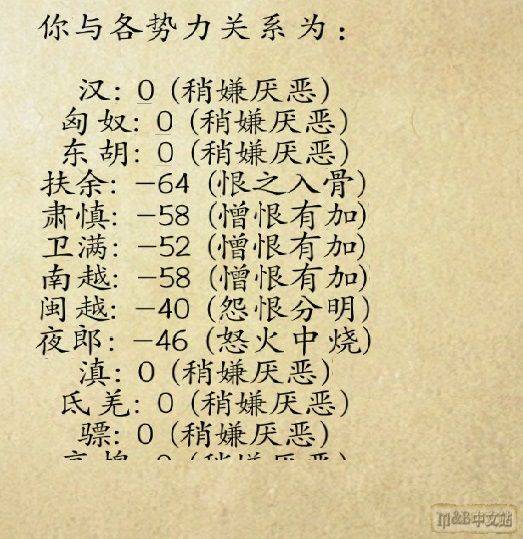 你与各势力关系为：
汉: 0 (稍嫌厌恶)
匈奴: 0 (稍嫌厌恶)
东胡: 0 (稍嫌厌恶)
扶余: -64 (恨之入骨)
肃慎: -58 (憎恨有加)
卫满: -52 (憎恨有加)
南越: -58 (憎恨有加)
闽越: -40 (怨恨分明)
夜郎: -46 (怒火中烧)
滇: 0 (稍嫌厌恶)
氐羌: 0 (稍嫌厌恶)
骠: 0 (稍嫌厌恶)
M&B中文站